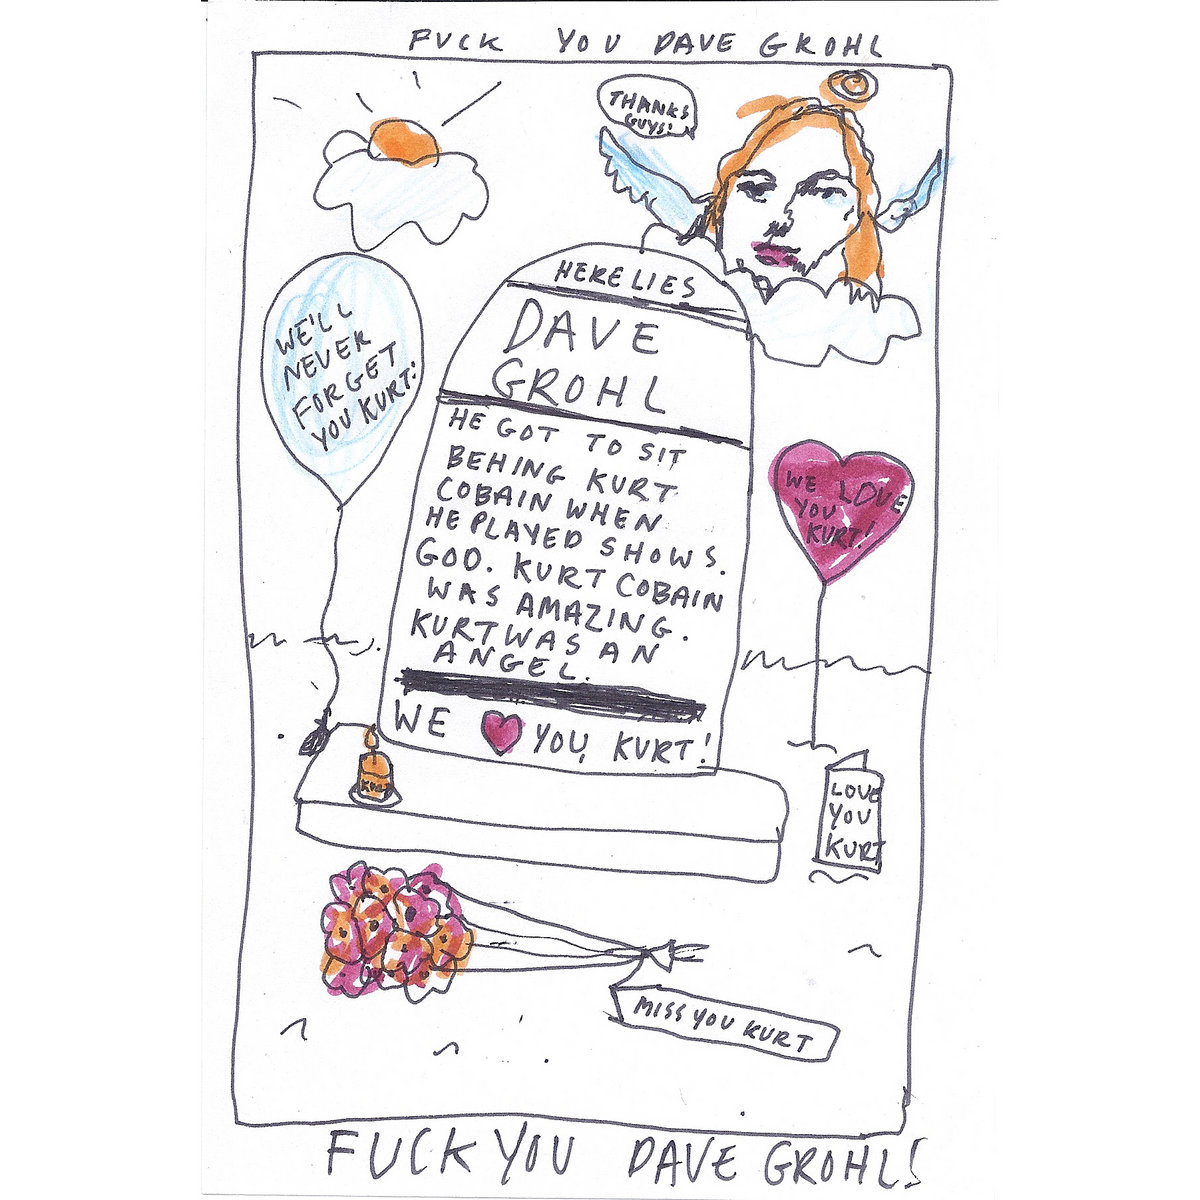 FUCK YOU DAVE GROHL
THANKS
GUYS!
HERE LIES
DAVE
GROHL
HE GOT TO SIT
BEHING KURT
COBAIN WHEN
HE PLAYED SHOWS.
GOD. KURT COBAIN
WAS AMAZING.
KURT WAS AN
ANGEL.
WE YOU, KURT!
WE'LL
NEVER
FORGET
YOU KURT.
WE LOVE
YOU
KURT!
KURT
LOVE
YOU
KURT
MISS YOU KURT
FUCK YOU DAVE GROHL!